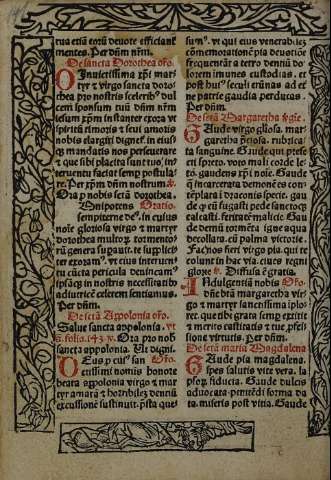 tua etiā eorū deuote efficiant̄
mentes. Per dn̄m nr̄m.
De sancta Dorothea ofo.
O Inuictissima xp̄i mar
tyr & virgo sancta doro
thea pro nostris scelerib9
dul
cem sponsum tuū dn̄m nr̄m
iesum xp̄m instanter exora vt
spiritū timoris & seui amoris
nobis largiri dignet̄ in eius
mandatis nos perseuerare
& que sibi placita sunt tuo in
teruentu faciat semp postula
re. Per xp̄m dn̄m nostrum
Ora p nobis sctā dorothea.
Omnipotens Oratio.
sempiterne de9. in cuius
note gloriosa virgo & martyr
dorothea multoꝝ tormento
rū genera supauit. te supplici
ter exoram9. vt eius interuen
tu cūcta pericula
in nostris necessitatib9
adiutricē celerem sentiamus.
Per dn̄m.
De sctā Appolonia ofo.
Salue sancta appolonia. vt
s. folio. Ora pro nob
sancta appolonia. Ut digni.
Deus p cui9 san Ofo.
ctissimi nomis honore
beata appolonia virgo & mar
tyr amara & horribilē dentiū
excussionē sustinuit. p̄sta que
sum9. vt qui eius venerabilē
cōmemorationē pia deuotiōe
frequentāt a tetro dentiū do
lorem imunes custodias. et
post hui9 seculi erūnas ad et̄
ne patrie gaudia perducas.
Per dn̄m.
De sctā Margaretha
Gaude virgo gliosa. mar
garetha p̄tiosa. rubrica
ta sanguine. Gaude qui pres
et spreto. voto mali corde le
to. gaudens xp̄i noīe. Gaude
q̄ incarcerata demone es con
tēplata
de ꝙ p fugasti pede
calcasti. feritatē malicie. Gau
de demū tormēta igne aqua
decollata. cū palma victorie.
Fac nos fieri virgo pia. qui te
colunt in hac via. ciues regni
glorie Diffusa ē gratia.
Indulgentiā nobis Ofo.
dn̄e btā margaretha vir
go et martyr sanctissima iplo
ret. que tibi grata semp extitit
& merito castitatis & tue p̄fes
sione virtutis. Per dn̄m.
De sctā maria Magdalena
Gaude pia magdalena.
spes salutis vite vena. la
psoꝝ fiducia. Gaude dulcis
aduocata
ta miseris post vitia. Gaude